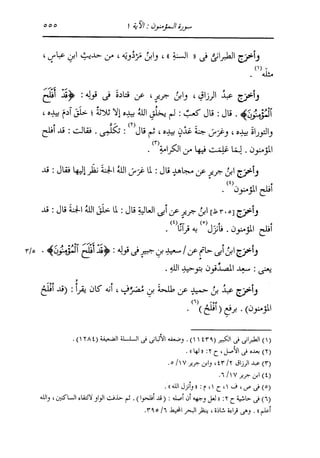 سورة المؤمنون : الآية ١
٥٥٥
وأخرج الطبرانىُّ فى « السنةِ » ، وابنُ مَرْدُويَه ، من حديثِ ابنِ عباسٍ ،
مثلَه(١) .
وأخرج عبدُ الرزاقِ ، وابنُ جريرٍ ، عن قتادةَ فى قولِه : ﴿قَدْ أَفْلَحَ
ٱلْمُؤْمِنُونَ﴾ . قال : قال كعبٌ : لم يخلُقِ اللهُ بيدِه إلا ثلاثةً ؛ خلَق آدمَ بيدِه ،
والتوراةَ بيدِه ، وغرَس جنةَ عَدْنٍ بيدِه ، ثم قال(٢) : تكلَّمِى . فقالت : قد أفلح
المؤمنون . لِمَا عَلِمَت فيها من الكرامةِ(٣) .
وأخرج ابنُ جريرٍ عن مجاهدٍ قال : لما غرَس اللهُ الجنةَ نظَر إليها فقال : قد
أفلح المؤمنون(٤) .
وأخرج [٣٠٥ظ] ابنُ جريرٍ عن أبى العاليةِ قال : لما خلَق اللهُ الجنةَ قال : قد
أفلح المؤمنون . فأنزَل(٥) به قرآنًا(٤) .
وأخرج ابنُ أبى حاتمٍ عن / سعيدِ بنِ جبيرٍ فى قولِه : ﴿قَدْ أَفْلَحَ ٱلْمُؤْمِنُونَ﴾ .
٣/٥
يعنى : سعِد المصدِّقون بتوحيدِ اللهِ .
وأخرج عبدُ بنُ حميدٍ عن طلحةَ بنِ مُصَرِّفٍ ، أنه كان يقرأُ : (قد أفلحُ
المؤمنون) . برفعِ (أَفْلَحُ)(٦) .
(١) الطبرانى فى الكبير (١١٤٣٩) . وضعفه الألبانى فى السلسلة الضعيفة (١٢٨٤) .
(٢) بعده فى الأصل ، ح ٢ : «لها» .
(٣) عبد الرزاق ٤٣/٢ ، وابن جرير ٥/١٧ .
(٤) ابن جرير ٦/١٧ .
(٥) فى ص ، ف ١ ، ح ١ ، م : «وأنزل الله» .
(٦) فى حاشية ح ٢ : «لعل وجهه أن أصله : (قد أفلحوا) . ثم حذفت الواو لالتقاء الساكنين ، والله
أعلم» . وهى قراءة شاذة ، ينظر البحر المحيط ٣٩٥/٦ .